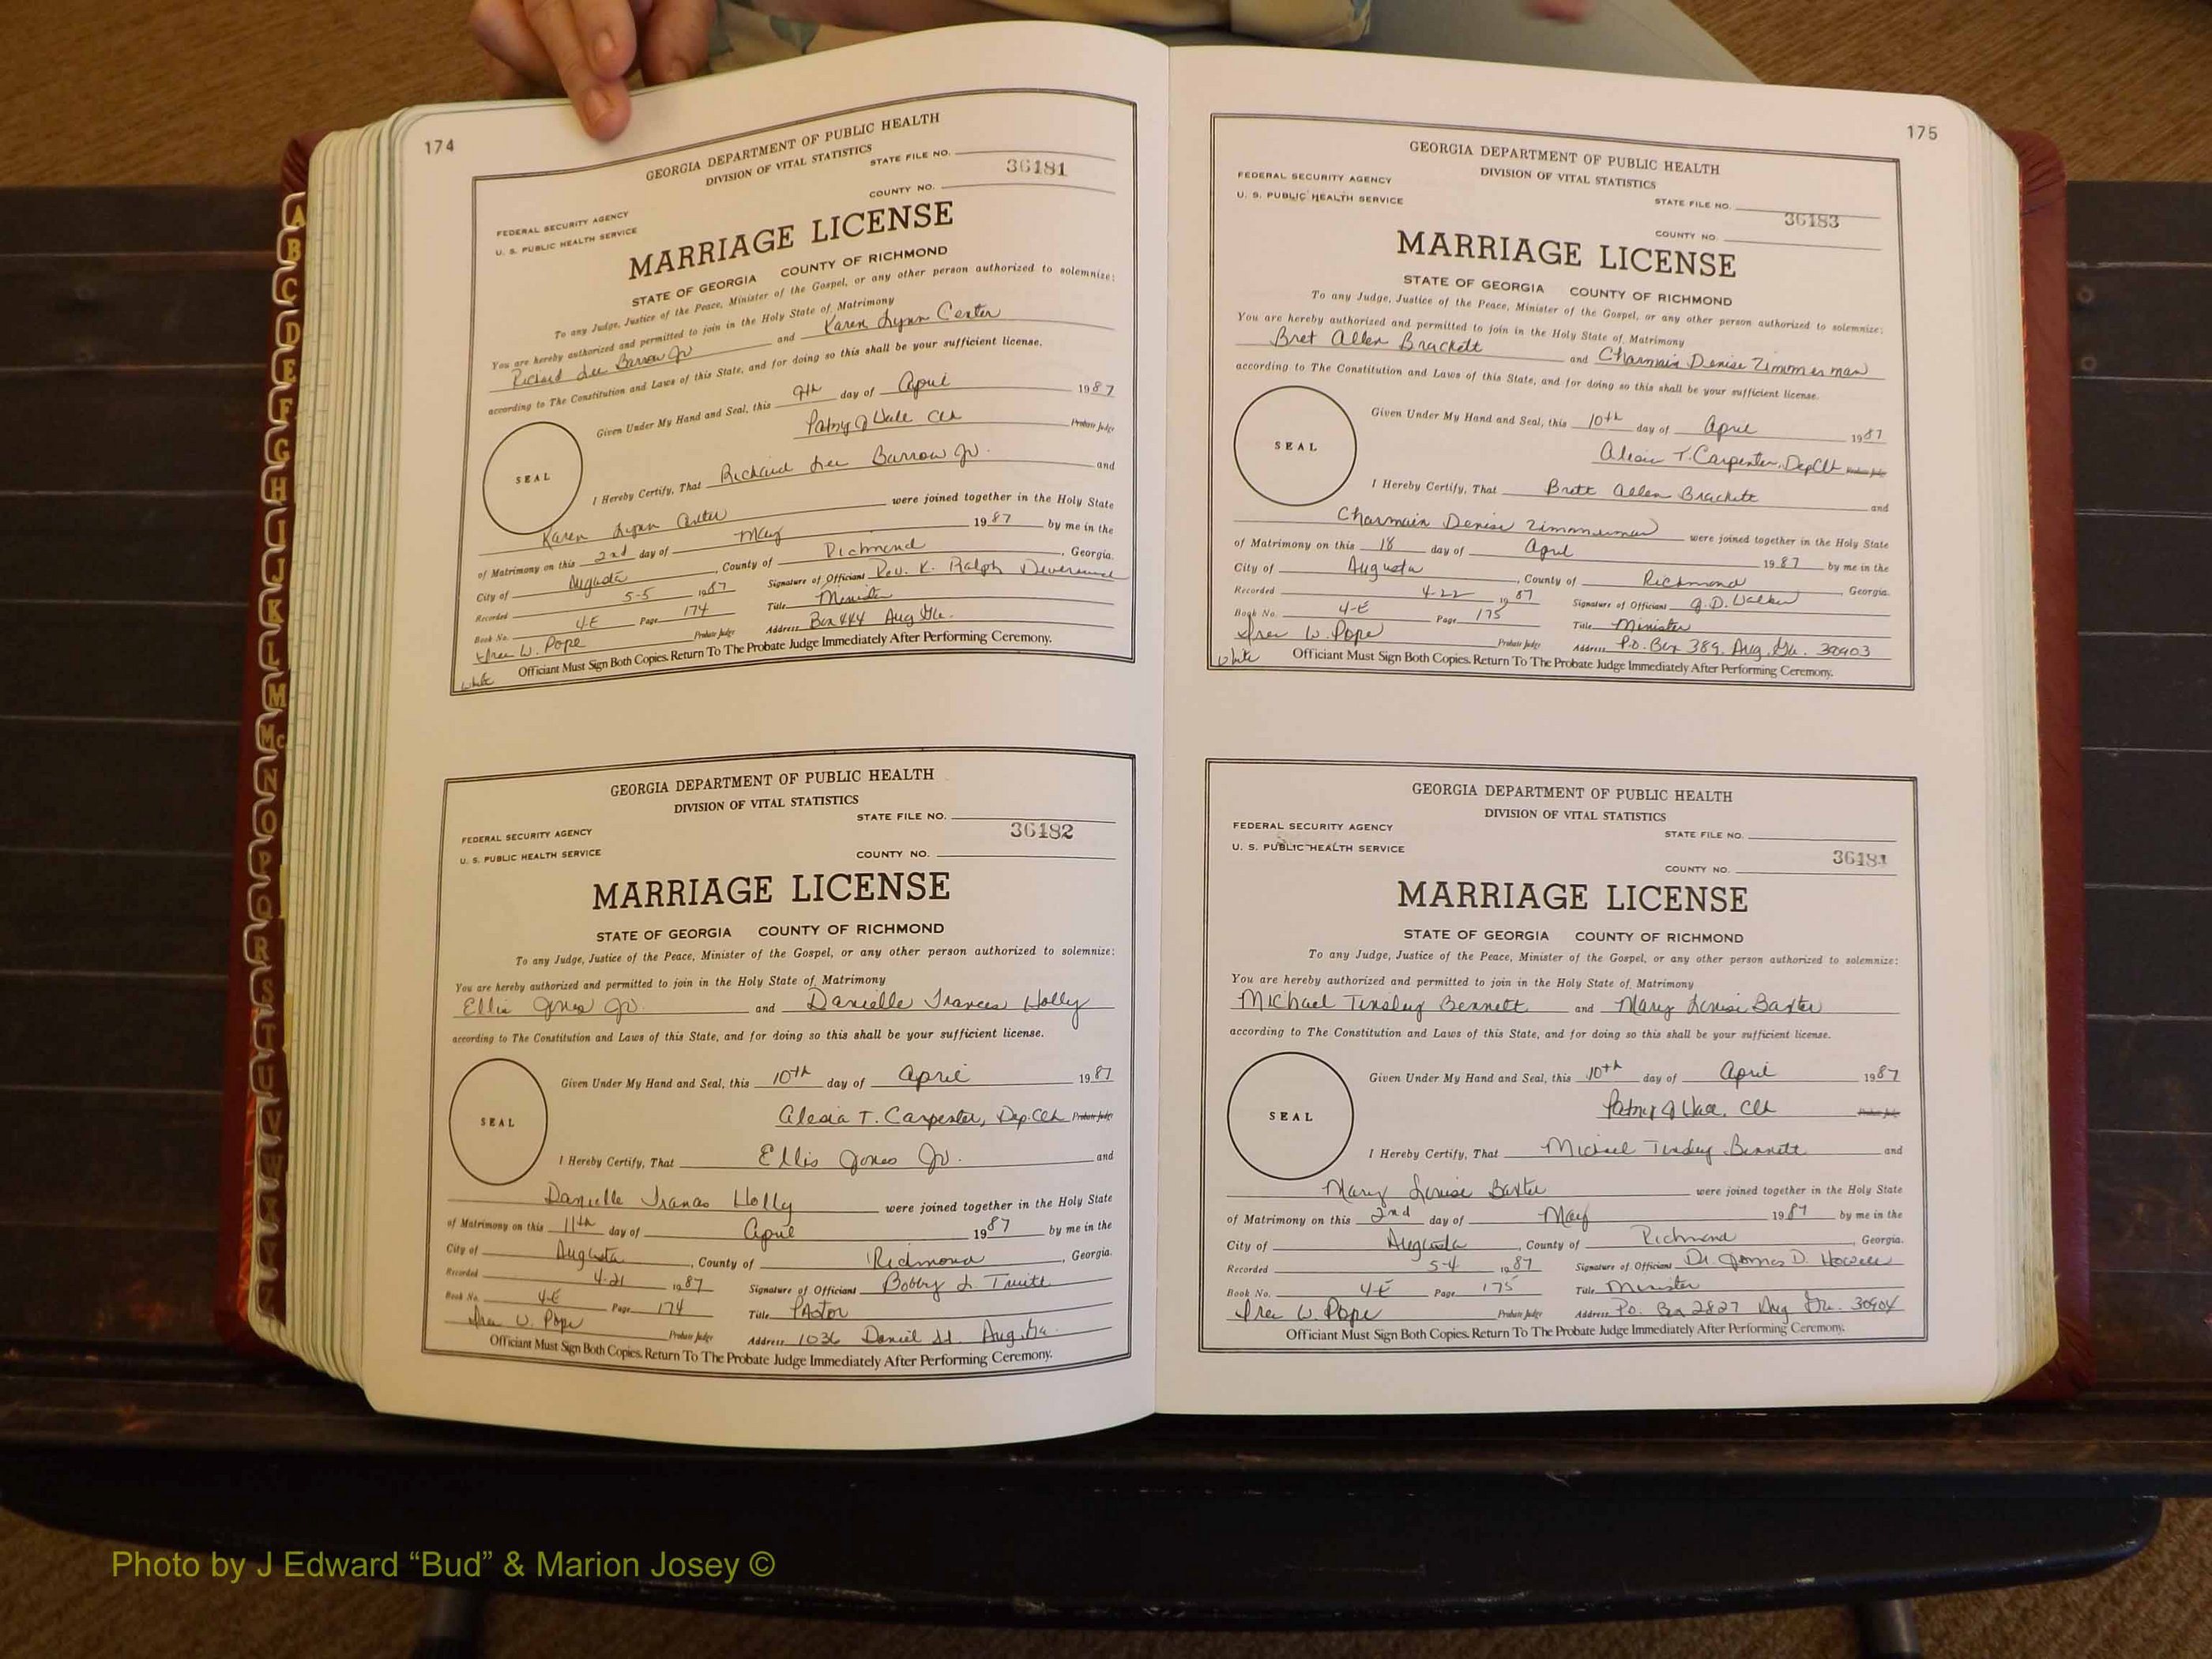 174
GEORGIA DEPARTMENT OF PUBLIC HEALTH
DIVISION OF VITAL STATISTICS
STATE FILE NO.
36181
COUNTY NO.
FEDERAL SECURITY AGENCY
U. S. PUBLIC HEALTH SERVICE
MARRIAGE LICENSE
STATE OF GEORGIA COUNTY OF RICHMOND
To any Judge, Justice of the Peace, Minister of the Gospel, or any other person authorized to solemnize:
You are hereby authorized and permitted to join in the Holy State of Matrimony
Richard Lee Barrow Jr and Karen Lynn Carter
according to The Constitution and Laws of this State, and for doing so this shall be your sufficient license.
Given Under My Hand and Seal, this 9th day of April 1987
Clk Probate Judge
SEAL
I Hereby Certify, That Richard Lee Barrow Jr. and
Karen Lynn Carter were joined together in the Holy State
of Matrimony on this 2nd day of May 1987 by me in the
City of Augusta, County of Richmond, Georgia.
Recorded 5-5 1987 Signature of Officiant Rev. K. Ralph
Book No. 4-E Page 174 Title Minister
W. Pope Probate Judge Address Box 444 Aug Ga.
Officiant Must Sign Both Copies. Return To The Probate Judge Immediately After Performing Ceremony.
White
GEORGIA DEPARTMENT OF PUBLIC HEALTH
DIVISION OF VITAL STATISTICS
STATE FILE NO.
36182
FEDERAL SECURITY AGENCY
U. S. PUBLIC HEALTH SERVICE
COUNTY NO.
MARRIAGE LICENSE
STATE OF GEORGIA COUNTY OF RICHMOND
To any Judge, Justice of the Peace, Minister of the Gospel, or any other person authorized to solemnize:
You are hereby authorized and permitted to join in the Holy State of Matrimony
Ellis Jones Jr. and Danielle Frances Holly
according to The Constitution and Laws of this State, and for doing so this shall be your sufficient license.
Given Under My Hand and Seal, this 10th day of April 1987
Alesia T. Carpenter, Dep. Clk Probate Judge
SEAL
I Hereby Certify, That Ellis Jones Jr. and
Danielle Frances Holly were joined together in the Holy State
of Matrimony on this 11th day of April 1987 by me in the
City of Augusta, County of Richmond, Georgia.
Recorded 4-21 1987 Signature of Officiant Bobby L. Truitt
Book No. 4-E Page 174 Title Pastor
W. Pope Probate Judge Address 1036 Daniel St. Aug. Ga.
Officiant Must Sign Both Copies. Return To The Probate Judge Immediately After Performing Ceremony.
175
GEORGIA DEPARTMENT OF PUBLIC HEALTH
DIVISION OF VITAL STATISTICS
FEDERAL SECURITY AGENCY
U. S. PUBLIC HEALTH SERVICE
STATE FILE NO.
36183
COUNTY NO.
MARRIAGE LICENSE
STATE OF GEORGIA COUNTY OF RICHMOND
To any Judge, Justice of the Peace, Minister of the Gospel, or any other person authorized to solemnize:
You are hereby authorized and permitted to join in the Holy State of Matrimony
Bret Allen Brackett and Charmain Denise Zimmerman
according to The Constitution and Laws of this State, and for doing so this shall be your sufficient license.
Given Under My Hand and Seal, this 10th day of April 1987
Alesia T. Carpenter, Dep Clk Probate Judge
SEAL
I Hereby Certify, That Brett Allen Brackett and
Charmain Denise Zimmerman were joined together in the Holy State
of Matrimony on this 18 day of April 1987 by me in the
City of Augusta, County of Richmond, Georgia.
Recorded 4-22 1987 Signature of Officiant G. D. Walker
Book No. 4-E Page 175 Title Minister
W. Pope Probate Judge Address P.O. Box 389, Aug. Ga. 30903
White
Officiant Must Sign Both Copies. Return To The Probate Judge Immediately After Performing Ceremony.
GEORGIA DEPARTMENT OF PUBLIC HEALTH
DIVISION OF VITAL STATISTICS
FEDERAL SECURITY AGENCY
U. S. PUBLIC HEALTH SERVICE
STATE FILE NO.
36184
COUNTY NO.
MARRIAGE LICENSE
STATE OF GEORGIA COUNTY OF RICHMOND
To any Judge, Justice of the Peace, Minister of the Gospel, or any other person authorized to solemnize:
You are hereby authorized and permitted to join in the Holy State of Matrimony
Michael Tinsley Bennett and Mary Louise Baxter
according to The Constitution and Laws of this State, and for doing so this shall be your sufficient license.
Given Under My Hand and Seal, this 10th day of April 1987
Clk Probate Judge
SEAL
I Hereby Certify, That Michael Tinsley Bennett and
Mary Louise Baxter were joined together in the Holy State
of Matrimony on this 2nd day of May 1987 by me in the
City of Augusta, County of Richmond, Georgia.
Recorded 5-4 1987 Signature of Officiant Dr. James D. Howell
Book No. 4-E Page 175 Title Minister
W. Pope Probate Judge Address P.O. Box 2827 Aug Ga. 30904
Officiant Must Sign Both Copies. Return To The Probate Judge Immediately After Performing Ceremony.
A
B
C
D
E
F
G
H
I
J
K
L
M
Mc
N
O
P
Q
R
S
T
U
V
W
Photo by J Edward “Bud” & Marion Josey ©